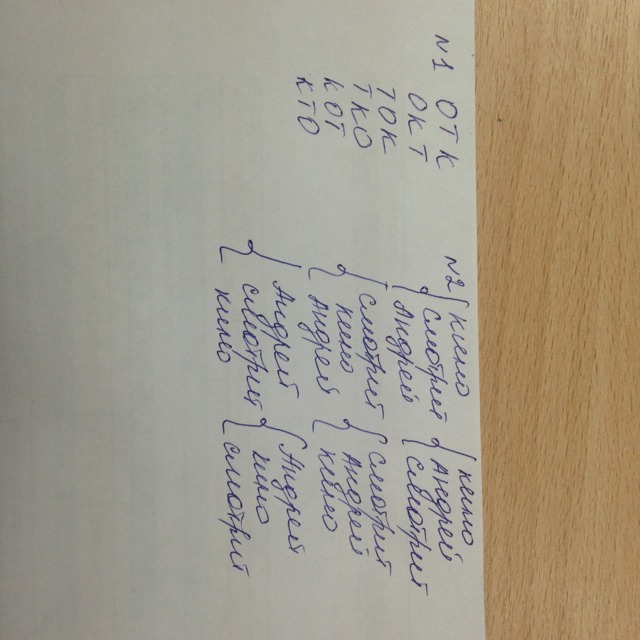 №1 ОТК
ОКТ
ТОК
ТКО
КОТ
КТО
№2 { кино
смотрит
Андрей
{ кино
Андрей
смотрит
{ смотрит
кино
Андрей
{ смотрит
Андрей
кино
{ Андрей
смотрит
кино
{ Андрей
кино
смотрит